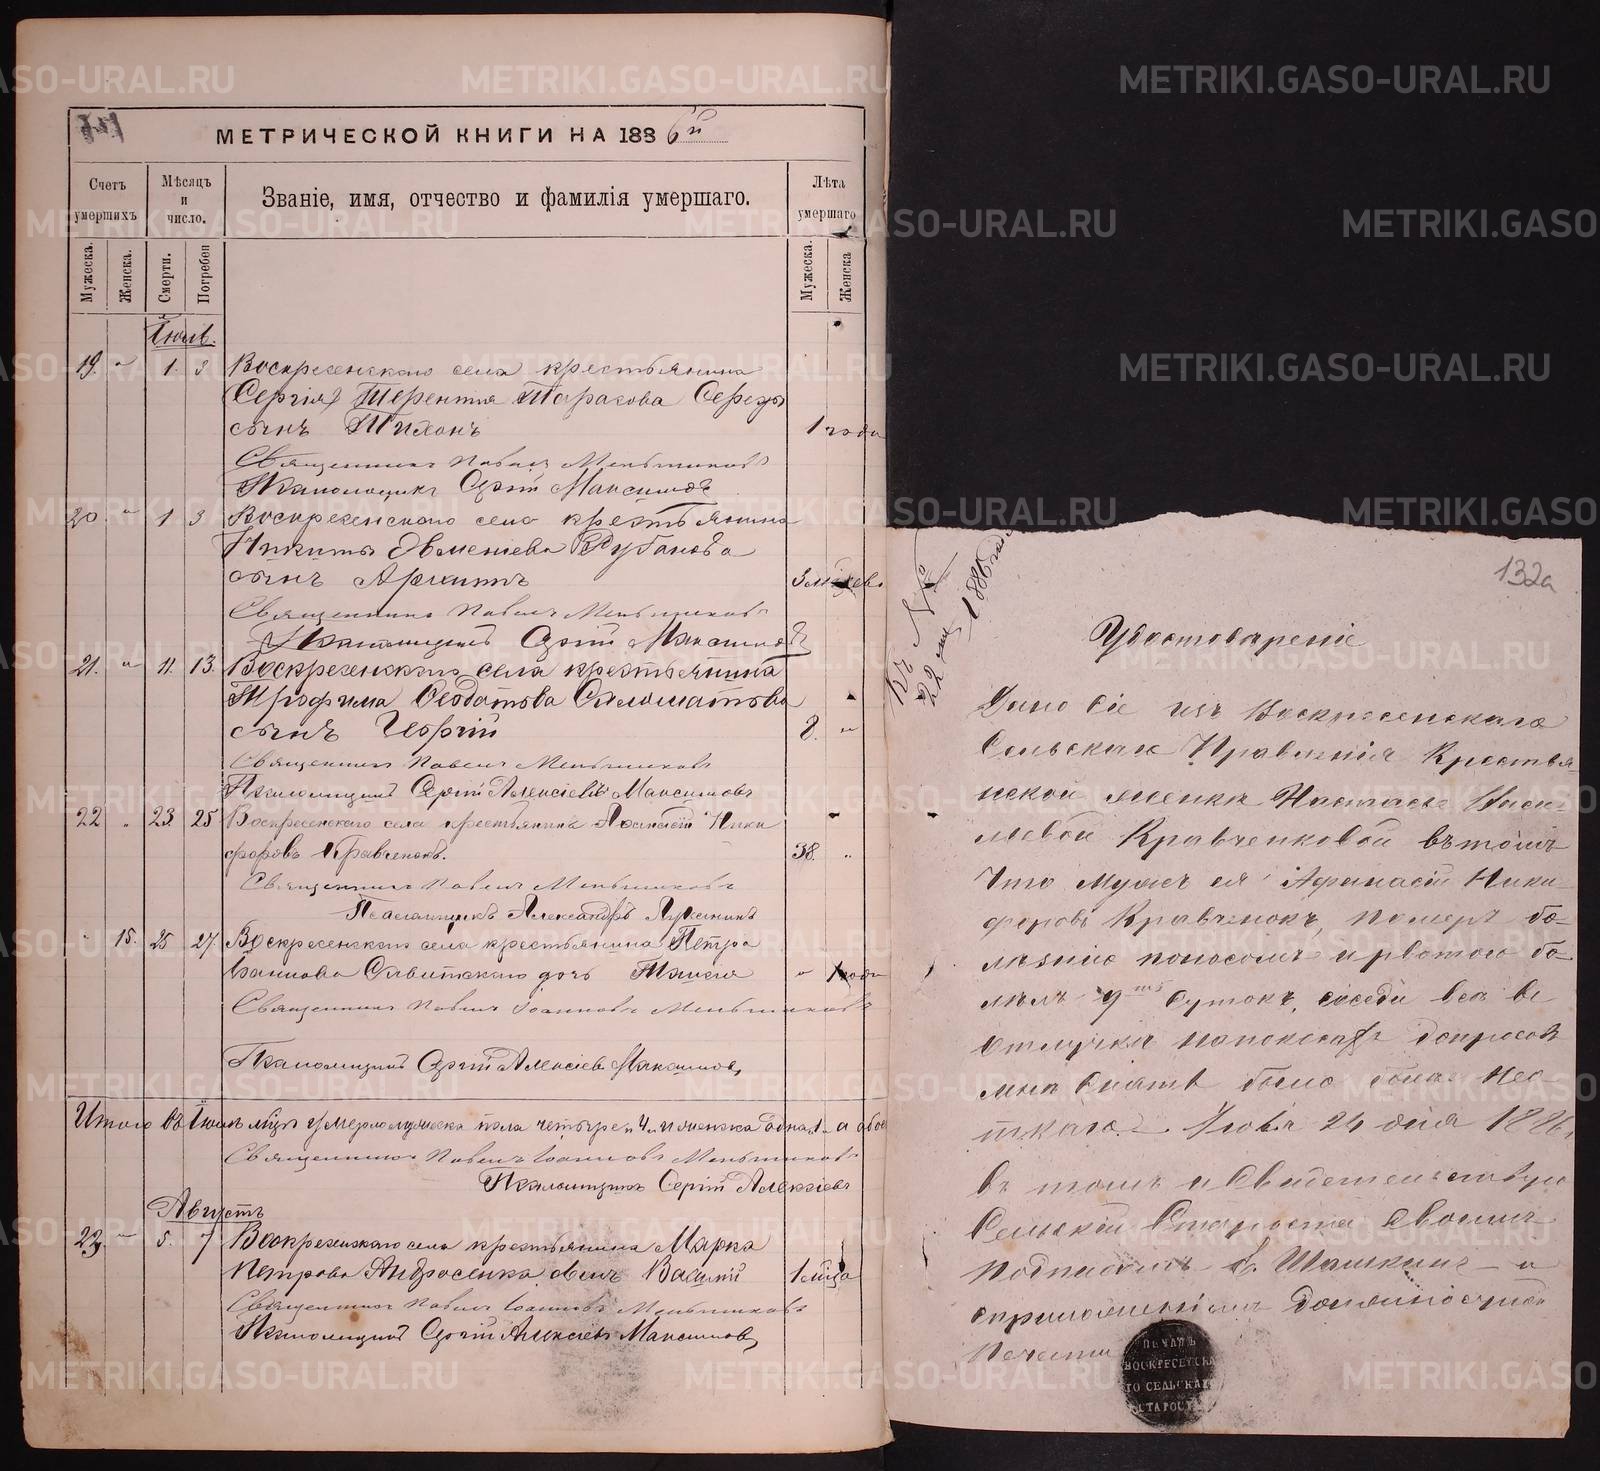 МЕТРИЧЕСКОЙ КНИГИ НА 1886й
Счетъ умершихъ
Мѣсяцъ и число.
Званіе, имя, отчество и фамилія умершаго.
Лѣта умершаго
Мужеска.
Женска.
Смерти.
Погребен
Мужеска.
Женска
Іюль.
19. " 1. 3 Воскресенскаго села крестьянина
Сергія Терентія Тарасова Середы
сынъ Тихонъ 1 года
Священникъ Павелъ Меньшиковъ
Псаломщикъ Сергій Максимовъ
20. " 1 3 Воскресенскаго села крестьянина
Никиты Рубанова
сынъ 3
Священникъ Павелъ Меньшиковъ
Псаломщикъ Сергій Максимовъ
21. " 11. 13. Воскресенскаго села крестьянина
Трофима Ѳеодотова
сынъ Георгій 8. "
Священникъ Павелъ Меньшиковъ
Псаломщикъ Сергій Алексіевъ Максимовъ
22 " 23. 25 Воскресенскаго села крестьянинъ Аѳанасій Ники
форовъ Кравченокъ. 38. "
Священникъ Павелъ Меньшиковъ
Псаломщикъ Александръ
" 15. 25 27 Воскресенскаго села крестьянина Петра
Савитскаго дочь " 1 года
Священникъ Павелъ Іоанновъ Меньшиковъ
Псаломщикъ Сергій Алексіевъ Максимовъ
Итого въ Іюлѣ м͠цѣ умерло мужеска пола четыре 4 и женска одна 1 а обое
Священникъ Павелъ Іоанновъ Меньшиковъ
Псаломщикъ Сергій Алексіевъ
Августъ
23. " 5. 7 Воскресенскаго села крестьянина Марка
Петрова Андросенка сынъ Василій 1 м͠ца
Священникъ Павелъ Іоанновъ Меньшиковъ
Псаломщикъ Сергій Алексіевъ Максимовъ
132а
Къ №
22 1886 года
Удостовереніе
Дано сіе изъ Воскресенскаго
Сельскаго Правленія Крестья-
нской женкѣ Настасье
Кравченковой въ томъ
что мужъ ея Афанасій Ники-
форовъ Кравченокъ, померъ бо-
лѣзнію поносомъ и рвотою бо-
лѣлъ 9 сутокъ, соседи все въ
отлучки допросов
снять было
Іюля 24 дня 1886
въ томъ и свидетельствую
Сельскій Староста своимъ
подписомъ Шашкинъ и
съ приложеніемъ должностной
печати
ПЕЧАТЬ
ВОСКРЕСЕНСКА
ГО СЕЛЬСКАГО
СТАРОСТЫ
METRIKI.GASO-URAL.RU